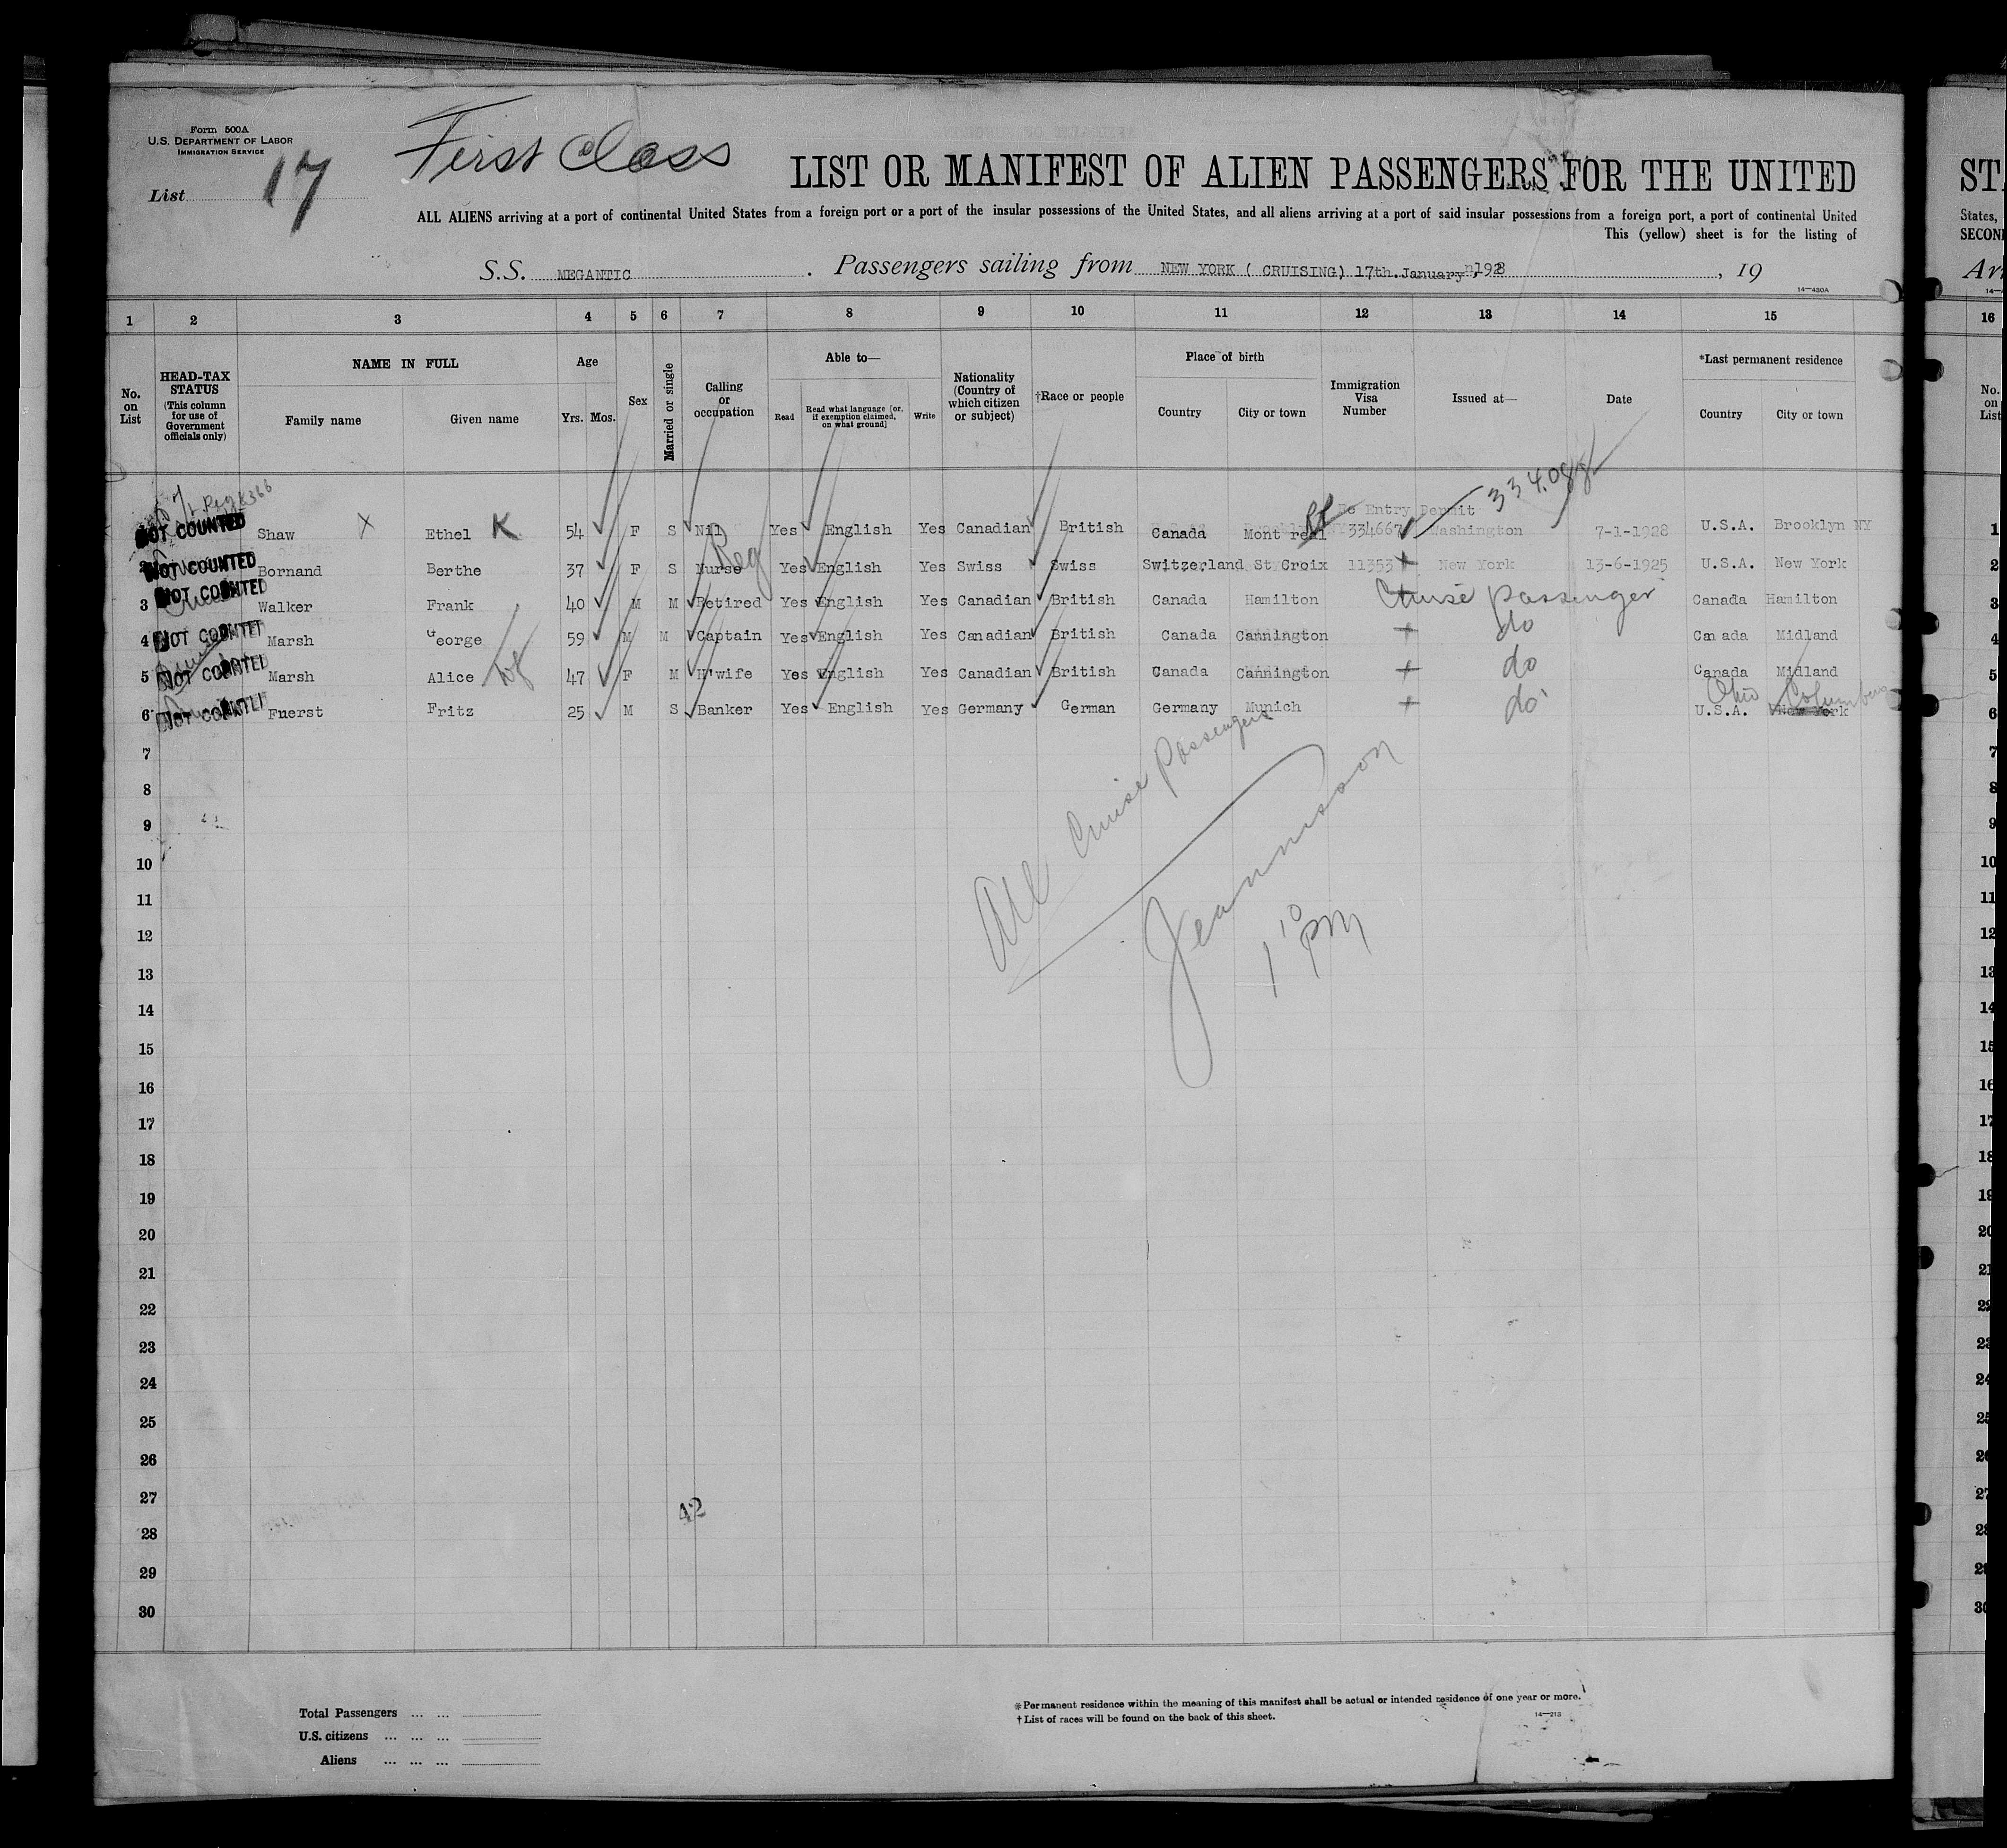 Form 500A
U.S. DEPARTMENT OF LABOR
IMMIGRATION SERVICE
List 17
First Class
LIST OR MANIFEST OF ALIEN PASSENGERS FOR THE UNITED
ALL ALIENS arriving at a port of continental United States from a foreign port or a port of the insular possessions of the United States, and all aliens arriving at a port of said insular possessions from a foreign port, a port of continental United
This (yellow) sheet is for the listing of
S.S. MEGANTIC . Passengers sailing from NEW YORK ( CRUISING) 17th.January, 1928 , 19
14—430A
1 2 3 4 5 6 7 8 9 10 11 12 13 14 15
No. on List
HEAD-TAX STATUS (This column for use of Government officials only)
NAME IN FULL
Family name Given name
Age
Yrs. Mos.
Sex
Married or single
Calling or occupation
Able to—
Read Read what language [or, if exemption claimed, on what ground] Write
Nationality (Country of which citizen or subject)
†Race or people
Place of birth
Country City or town
Immigration Visa Number
Issued at—
Date
*Last permanent residence
Country City or town
334.088
Re Entry Permit
NOT COUNTED Shaw X Ethel K 54 F S Nil Yes English Yes Canadian British Canada Mont real 334667 Washington 7-1-1928 U.S.A. Brooklyn NY
2 NOT COUNTED Bornand Berthe 37 F S Nurse Reg Yes English Yes Swiss Swiss Switzerland St Croix 11353 New York 13-6-1925 U.S.A. New York
3 NOT COUNTED Walker Frank 40 M M Retired Yes English Yes Canadian British Canada Hamilton Cruise passenger Canada Hamilton
4 NOT COUNTED Marsh George 59 M M Captain Yes English Yes Canadian British Canada Cannington do Canada Midland
5 NOT COUNTED Marsh Alice 47 F M H'wife Yes English Yes Canadian British Canada Cannington do Canada Midland
Ohio Columbus
6 NOT COUNTED Fuerst Fritz 25 M S Banker Yes English Yes Germany German Germany Munich do U.S.A. New York
7
8
9
10
11
12
13
14
15
16
17
18
19
20
21
22
23
24
25
26
27
28
29
30
All Cruise Passengers
1 10 PM
42
Total Passengers ... ...
U.S. citizens ... ... ...
Aliens ... ... ...
*Permanent residence within the meaning of this manifest shall be actual or intended residence of one year or more.
†List of races will be found on the back of this sheet.
14—213
STA
States,
SECON
Arr
16
No. on List
1
2
3
4
5
6
7
8
9
10
11
12
13
14
15
16
17
18
19
20
21
22
23
24
25
26
27
28
29
30